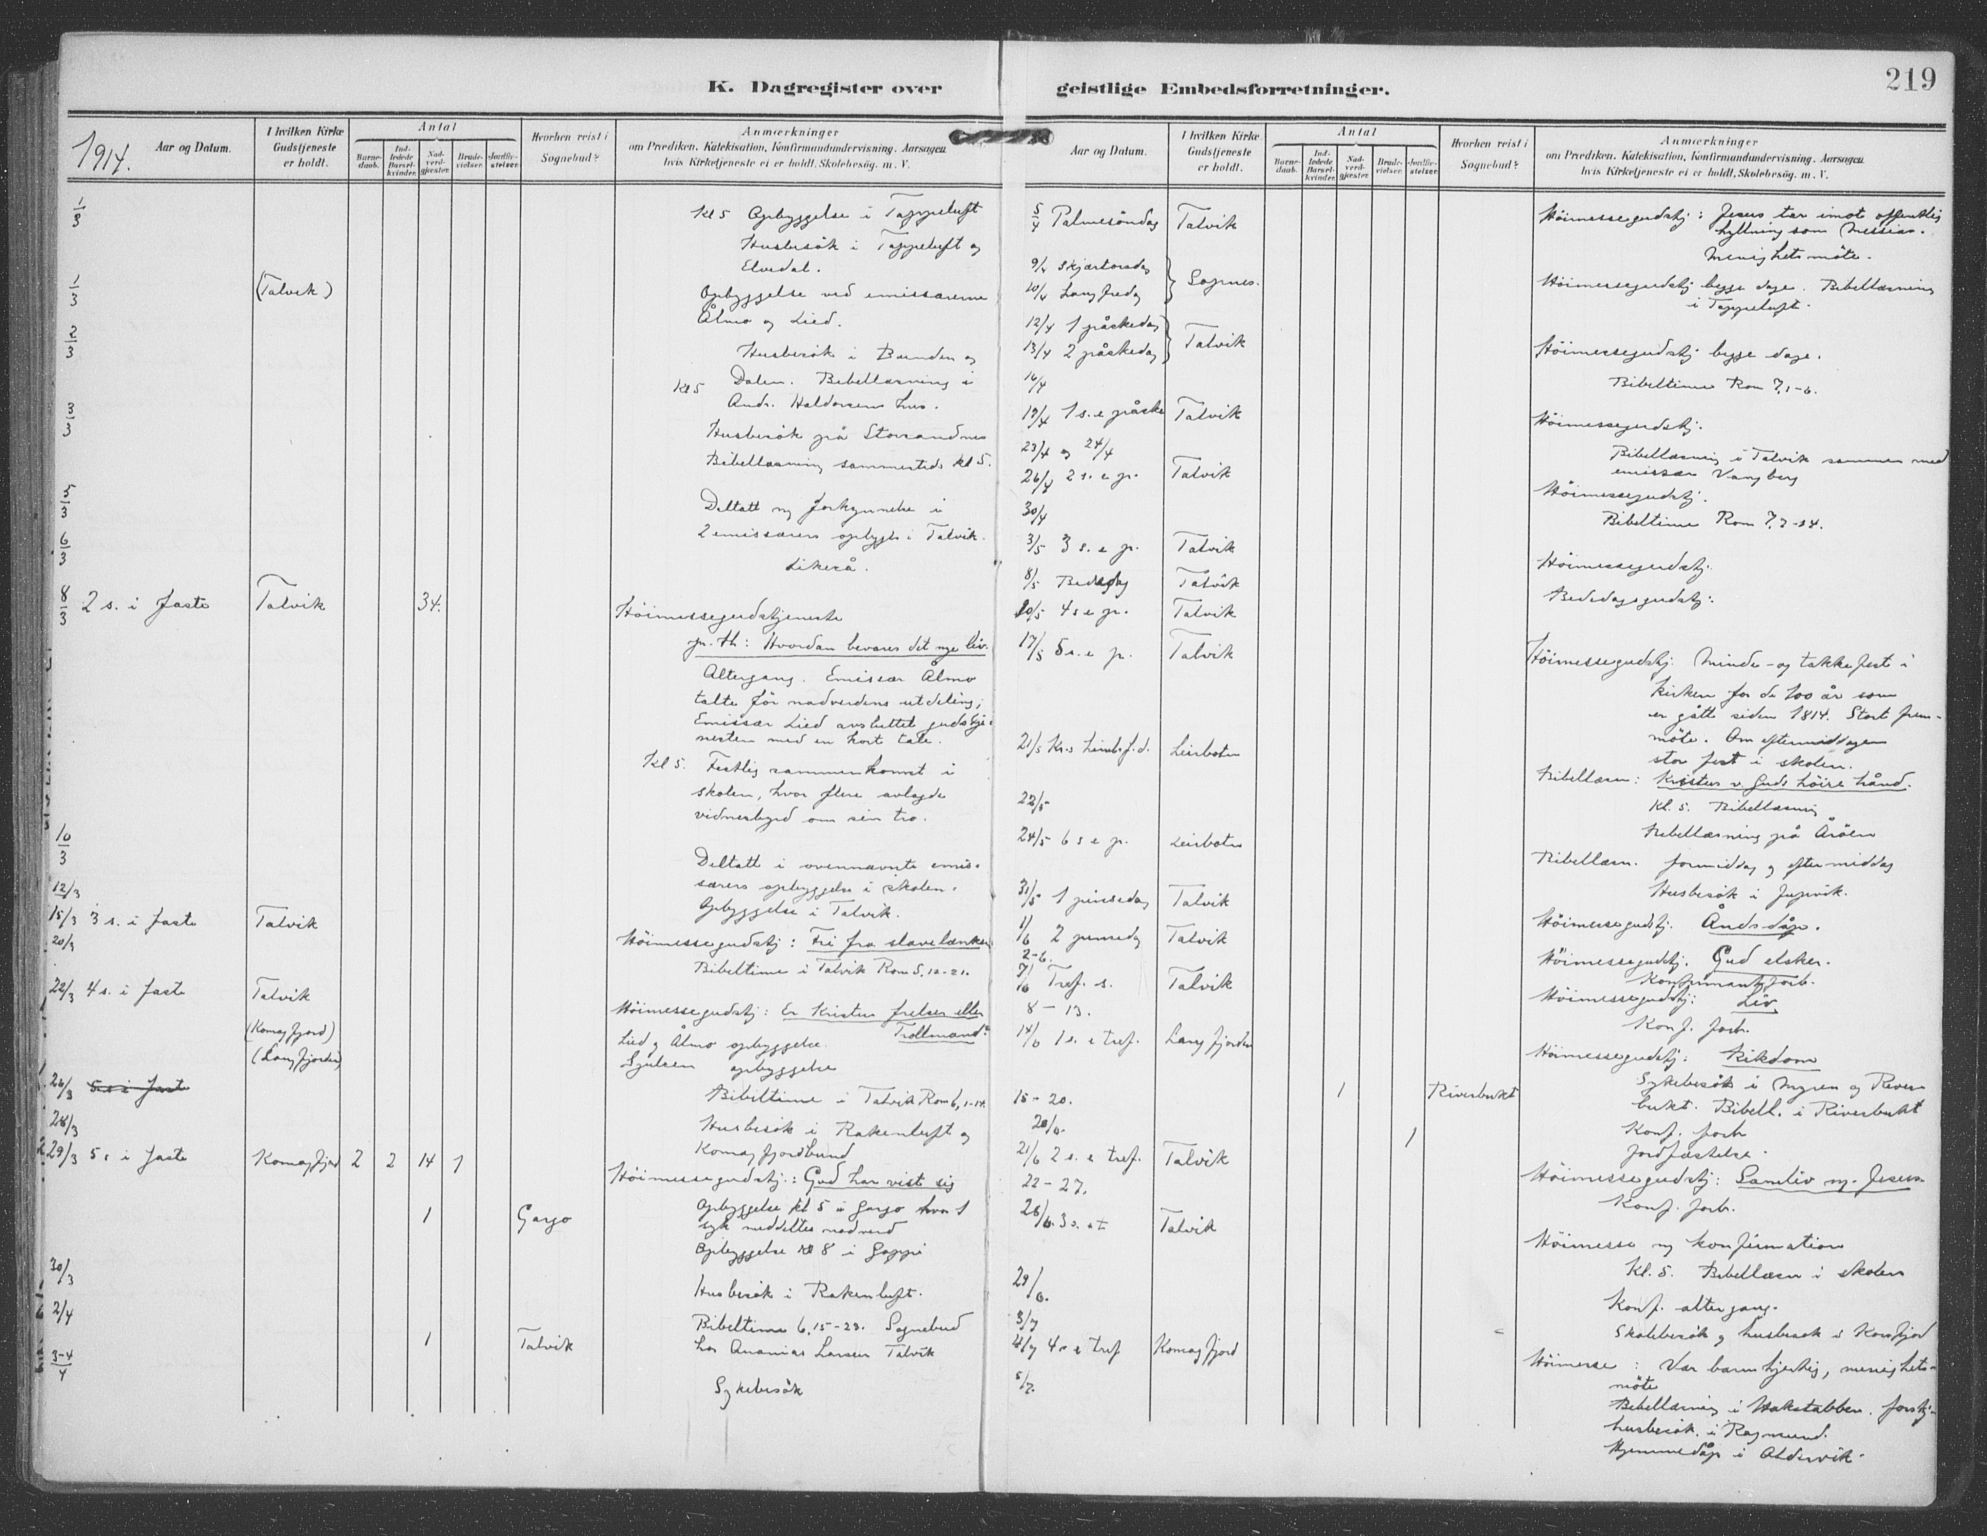 K. Dagregister over geistlige Embedsforretninger.
219
1914.
Aar og Datum.
I hvilken Kirke Gudstjeneste er holdt.
Antal
Barnedaab.
Indledede Barselkvinder.
Nadverdgjester.
Brudevielser.
Jordfæstelser.
Hvorhen reist i Sognebud?
Anmærkninger
om Prædiken, Katekisation, Konfirmandundervisning, Aarsagen
hvis Kirketjeneste ei er holdt, Skolebesøg, m. V.
1/3 Kl 5 Opbyggelse i Tappeluft
Husbesök i Tappeluft og
Elvedal.
1/3 (Talvik) Opbyggelse ved emissærerne
Ålmo og Lied.
2/3 Husbesök i Bunden og
Kl 5 Dalen. Bibellæsning i
Andr. Haldorsens hus.
3/3 Husbesök på Storsandnes
Bibellæsning sammesteds kl 5.
5/3 Deltatt m forkynnelse i
2 emissærers opbygg. i Talvik.
6/3 Likeså.
8/3 2 s. i faste Talvik 34. Höimessegudstjeneste
pr. th: Hvordan bevares det nye liv.
Altergang. Emissær Ålmo
talte för nadverdens utdeling;
Emissær Lied avsluttet gudstje
nesten med en kort tale.
Kl 5. Festlig sammenkomst i
skolen, hvor flere avlagde
vidnesbyrd om sin tro.
10/3 Deltatt i ovennævnte emis-
særers opbyggelse i skolen.
12/3 Opbyggelse i Talvik.
15/3 3 s. i faste Talvik Höimessegudstj: Fri fra slavelænker
20/3 Bibeltime i Talvik Rom 5, 12-21.
22/3 4 s. i faste Talvik Höimessegudstj: Er Kristus frelser eller
Trollmand?
(Komagfjord) Lied og Ålmo opbyggelse.
(Langfjorden) opbyggelse
26/3 5 s i faste Bibeltime i Talvik Rom 6, 1-14.
28/3 Husbesök i Rakenluft og
Komagfjordbund
29/3 5 s i faste Komagfjord 2 2 14 1 Höimessegudstj.: Gud har vist sig
1 Gargo Opbyggelse kl 5 i Gargo hvor 1
syk meddeltes nadverd
Opbyggelse kl 8 i
30/3 Husbesök i Rakenluft.
2/4 1 Talvik Bibeltime 6, 15-23. Sognebud
hos Ananias Larsen Talvik
3-4/4 Sykebesök
Aar og Datum.
I hvilken Kirke Gudstjeneste er holdt.
Antal
Barnedaab.
Indledede Barselkvinder.
Nadverdgjester.
Brudevielser.
Jordfæstelser.
Hvorhen reist i Sognebud?
Anmærkninger
om Prædiken, Katekisation, Konfirmandundervisning, Aarsagen
hvis Kirketjeneste ei er holdt, Skolebesøg, m. V.
5/4 Palmesöndag Talvik Höimessegudstj: Jesus tar imot offentlig
hyllning som Messias.
Menighetsmöte.
9/4 Skjærtorsdag
10/4 Langfredag Sopnes. Höimessegudstj begge dage. Bibellæsning
i Tappeluft.
12/4 1 påskedag
13/4 2 påskedag Talvik Höimessegudstj begge dage.
16/4 Bibeltime Rom 7, 1-6.
19/4 1 s. e påske Talvik Höimessegudstj.
23/4 og 24/4 Bibellæsning i Talvik sammen med
emissær Vangberg
26/4 2 s. e p. Talvik Höimessegudstj.
30/4 Bibeltime Rom 7, 7-14.
3/5 3 s. e p. Talvik Höimessegudstj.
8/5 Bededag Talvik Bededagsgudstj:
10/5 4 s e p. Talvik
17/5 5 s. e p. Talvik Höimessegudstj: Minde- og takkefest i
kirken for de 100 år som
er gått siden 1814. Stort frem-
möte. Om eftermiddagen
stor fest i skolen.
21/5 Kr.s himlsf.d. Leirbotn Bibellæsn: Kristus v. Guds höire hånd.
Kl. 5. Bibellæsning
22/5 Bibellæsning på Åröen
24/5 6 s e p. Leirbotn Bibellæsn. formiddag og eftermiddag
Husbesök i
31/5 1 pinsedag Talvik Höimessegudstj. Åndsdåp.
1/6 2 pinsedag Talvik Höimessegudstj. Gud elsker.
2-6. Konfirmantforb.
7/6 Tref. s. Talvik Höimessegudstj: Liv
8-13. Konf. forb.
14/6 1 s. e tref. Langfjorden Höimessegudstj: Rikdom
15-20. 1 Riverbukt Sykebesök i Myren og River-
bukt. Bibell. i Riverbukt
Konf. forb
20/6. 1 Jordfæstelse.
21/6 2 s. e tref. Talvik Höimessegudstj: Samliv m. Jesus
22-27. Konf. forb.
28/6. 3 s. e t Talvik Höimesse m konfirmation
Kl. 5. Bibellæsn i skolen
29/6. Konf. altergang.
3/7 Skolebesök og husbesök i Komfjord
4/7 4 s e tref Komagfjord Höimesse: Vær barmhjertig, menighets-
möte
5/7. Bibellæsning i Hakstabben.
husbesök i
Hjemmedåp i